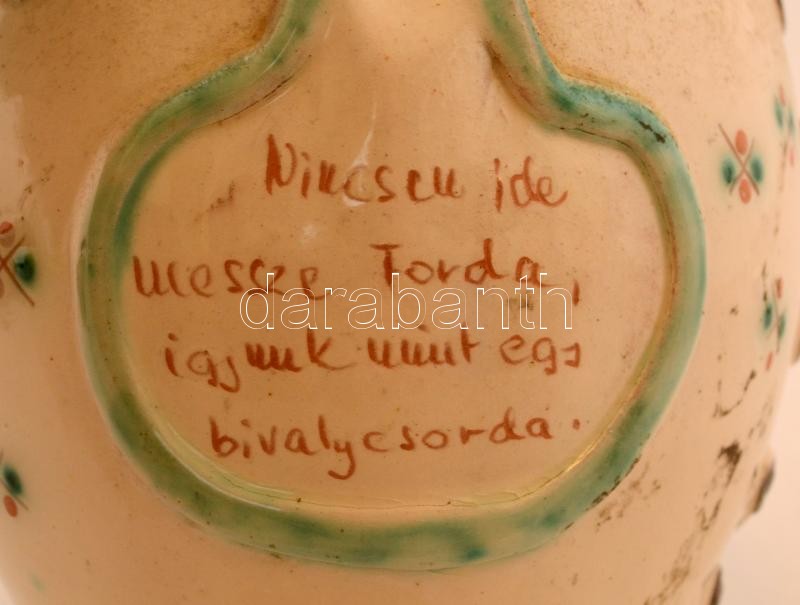 Nincsen ide
messze Torda,
igyunk mint egy
bivalycsorda.
darabanth